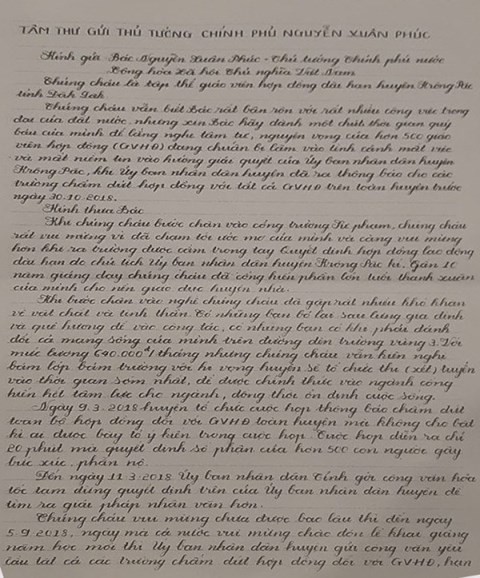 TÂM THƯ GỬI THỦ TƯỚNG CHÍNH PHỦ NGUYỄN XUÂN PHÚC
Kính gửi Bác Nguyễn Xuân Phúc - Thủ tướng Chính phủ nước
Cộng hòa Xã hội Chủ nghĩa Việt Nam
Chúng cháu là tập thể giáo viên hợp đồng dài hạn huyện Krông Pắc
tỉnh Đăk Lăk
Chúng cháu vẫn biết Bác rất bận rộn với rất nhiều công việc trọng
đại của đất nước, nhưng xin Bác hãy dành một chút thời gian quý
báu của mình để lắng nghe tâm tư, nguyện vọng của hơn 500 giáo
viên hợp đồng (GVHĐ) đang chuẩn bị lâm vào tình cảnh mất việc
và mất niềm tin vào hướng giải quyết của Ủy ban nhân dân huyện
Krông Pắc, khi Ủy ban nhân dân huyện đã ra thông báo cho các
trường chấm dứt hợp đồng với tất cả GVHĐ trên toàn huyện trước
ngày 30.10.2018.
Kính thưa Bác
Khi chúng cháu bước chân vào cổng trường Sư phạm, chúng cháu
rất vui mừng vì đã chạm tới ước mơ của mình và càng vui mừng
hơn khi ra trường được cầm trong tay Quyết định hợp đồng lao động
dài hạn do chủ tịch Ủy ban nhân dân huyện Krông Pắc kí. Gần 10
năm giảng dạy chúng cháu đã cống hiến phần lớn tuổi thanh xuân
của mình cho nền giáo dục huyện nhà.
Khi bước chân vào nghề chúng cháu đã gặp rất nhiều khó khăn
về vật chất và tinh thần. Có những bạn bỏ lại sau lưng gia đình
và quê hương để vào công tác, có những bạn có khi phải đánh
đổi cả mạng sống của mình trên đường đến trường vùng 3. Với
mức lương 640.000đ/tháng nhưng chúng cháu vẫn kiên nghị
bám lớp bám trường với hi vọng huyện sẽ tổ chức thi (xét) tuyển
vào thời gian sớm nhất, để được chính thức vào ngành cống
hiến hết tâm lực cho ngành, đồng thời ổn định cuộc sống.
Ngày 9.3.2018 huyện tổ chức cuộc họp thông báo chấm dứt
toàn bộ hợp đồng đối với GVHĐ toàn huyện mà không cho bất
kì ai được bày tỏ ý kiến trong cuộc họp. Cuộc họp diễn ra chỉ
20 phút mà quyết định số phận của hơn 500 con người gây
bức xúc, phẫn nộ.
Đến ngày 11.3.2018 Ủy ban nhân dân Tỉnh gửi công văn hỏa
tốc tạm dừng quyết định trên của Ủy ban nhân dân huyện để
tìm ra giải pháp nhân văn hơn.
Chúng cháu vui mừng chưa được bao lâu thì đến ngày
5.9.2018, ngày mà cả nước vui mừng chào đón lễ khai giảng
năm học mới thì Ủy ban nhân dân huyện gửi công văn yêu
cầu tất cả các trường chấm dứt hợp đồng đối với GVHĐ, hạn